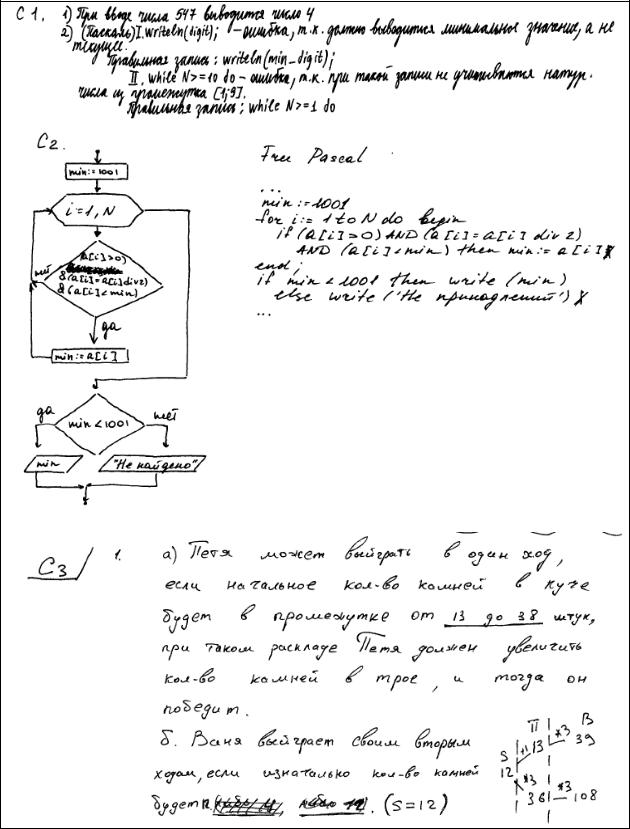 С1. 1) При вводе числа 547 выводится число 4
2) (Паскаль) I. writeln(digit); – ошибка, т.к. должно выводиться минимальное значение, а не
текущее.
Правильная запись: writeln(min_digit);
II. while N>=10 do – ошибка, т.к. при такой записи не учитываются натур.
числа из промежутка [1;9].
Правильная запись: while N>=1 do
С2.
min:=1001
i=1,N
(a[i]>0)
&(a[i]=a[i]div2)
&(a[i]<min)
нет
да
min:=a[i]
да
min<1001
нет
min
"Не найдено"
Free Pascal
...
min:=1001
for i:=1 to N do begin
if (a[i]>0) AND (a[i]=a[i] div 2)
AND (a[i]<min) then min:=a[i]
end;
if min<1001 then write (min)
else write ('Не')
...
С3 1. а) Петя может выйграть в один ход,
если начальное кол-во камней в куче
будет в промежутке от 13 до 38 штук,
при таком раскладе Петя должен увеличить
кол-во камней в трое, и тогда он
победит.
б. Ваня выйграет своим вторым
ходом, если изначально кол-во камней
будет (S=12)
S II В
12 +1 13 *3 39
*3 36 *3 108